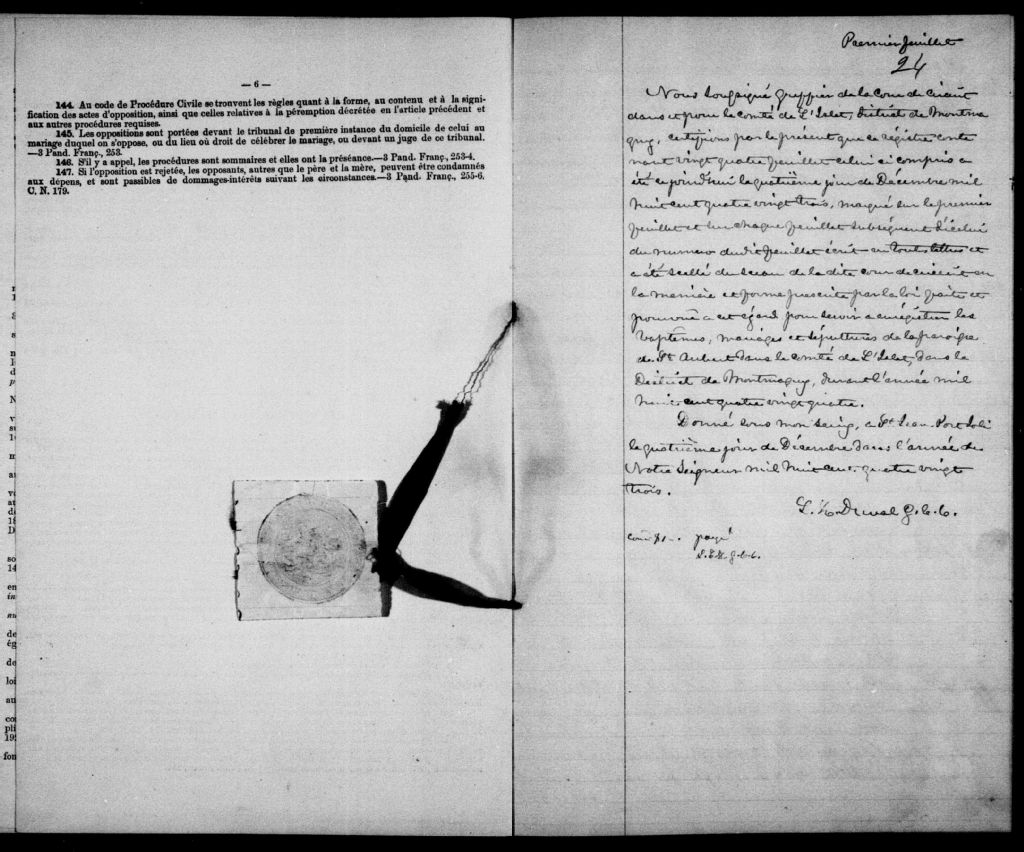 — 6 —
144. Au code de Procédure Civile se trouvent les règles quant à la forme, au contenu et à la signi-
fication des actes d'opposition, ainsi que celles relatives à la péremption décrétée en l'article précédent et
aux autres procédures requises.
145. Les oppositions sont portées devant le tribunal de première instance du domicile de celui au
mariage duquel on s'oppose, ou du lieu où droit de célébrer le mariage, ou devant un juge de ce tribunal.
—3 Pand. Franç., 253.
146. S'il y a appel, les procédures sont sommaires et elles ont la préséance.—3 Pand. Franç., 253-4.
147. Si l'opposition est rejetée, les opposants, autres que le père et la mère, peuvent être condamnés
aux dépens, et sont passibles de dommages-intérêts suivant les circonstances.—3 Pand. Franç., 255-6.
C. N. 179.
Premier feuillet
24
Nous Sousigné greffier de la cour de circuit
dans et pour le comté de L'Islet, District de Montma
gny, certifions par le présent que ce régistre conte
nant vingt quatre feuillet celui ci compris a
été ce jourd'hui le quatrième jour de Décembre mil
huit cent quatre vingt trois, marqué sur le premier
feuillet et sur chaque feuillet subséquent d'icelui
du numero dudit feuillet écrit en touts lettres et
a été scellé du sceau de la dite cour de circuit en
la manière et forme prescrite par la loi faite et
pourvue a cet égard pour servir a enrégistrer les
baptêmes, mariages et sépultures de la paroisse
de St Aubert dans le comté de L'Islet, dans le
District de Montmagny, durant l'année mil
huit cent quatre vingt quatre.
Donné sous mon seing, a St Jean Port Joli
le quatrième jour de Décembre dans l'année de
Notre Seigneur mil huit cent quatre vingt
trois.
G. C. C.
payé
g.c.c.